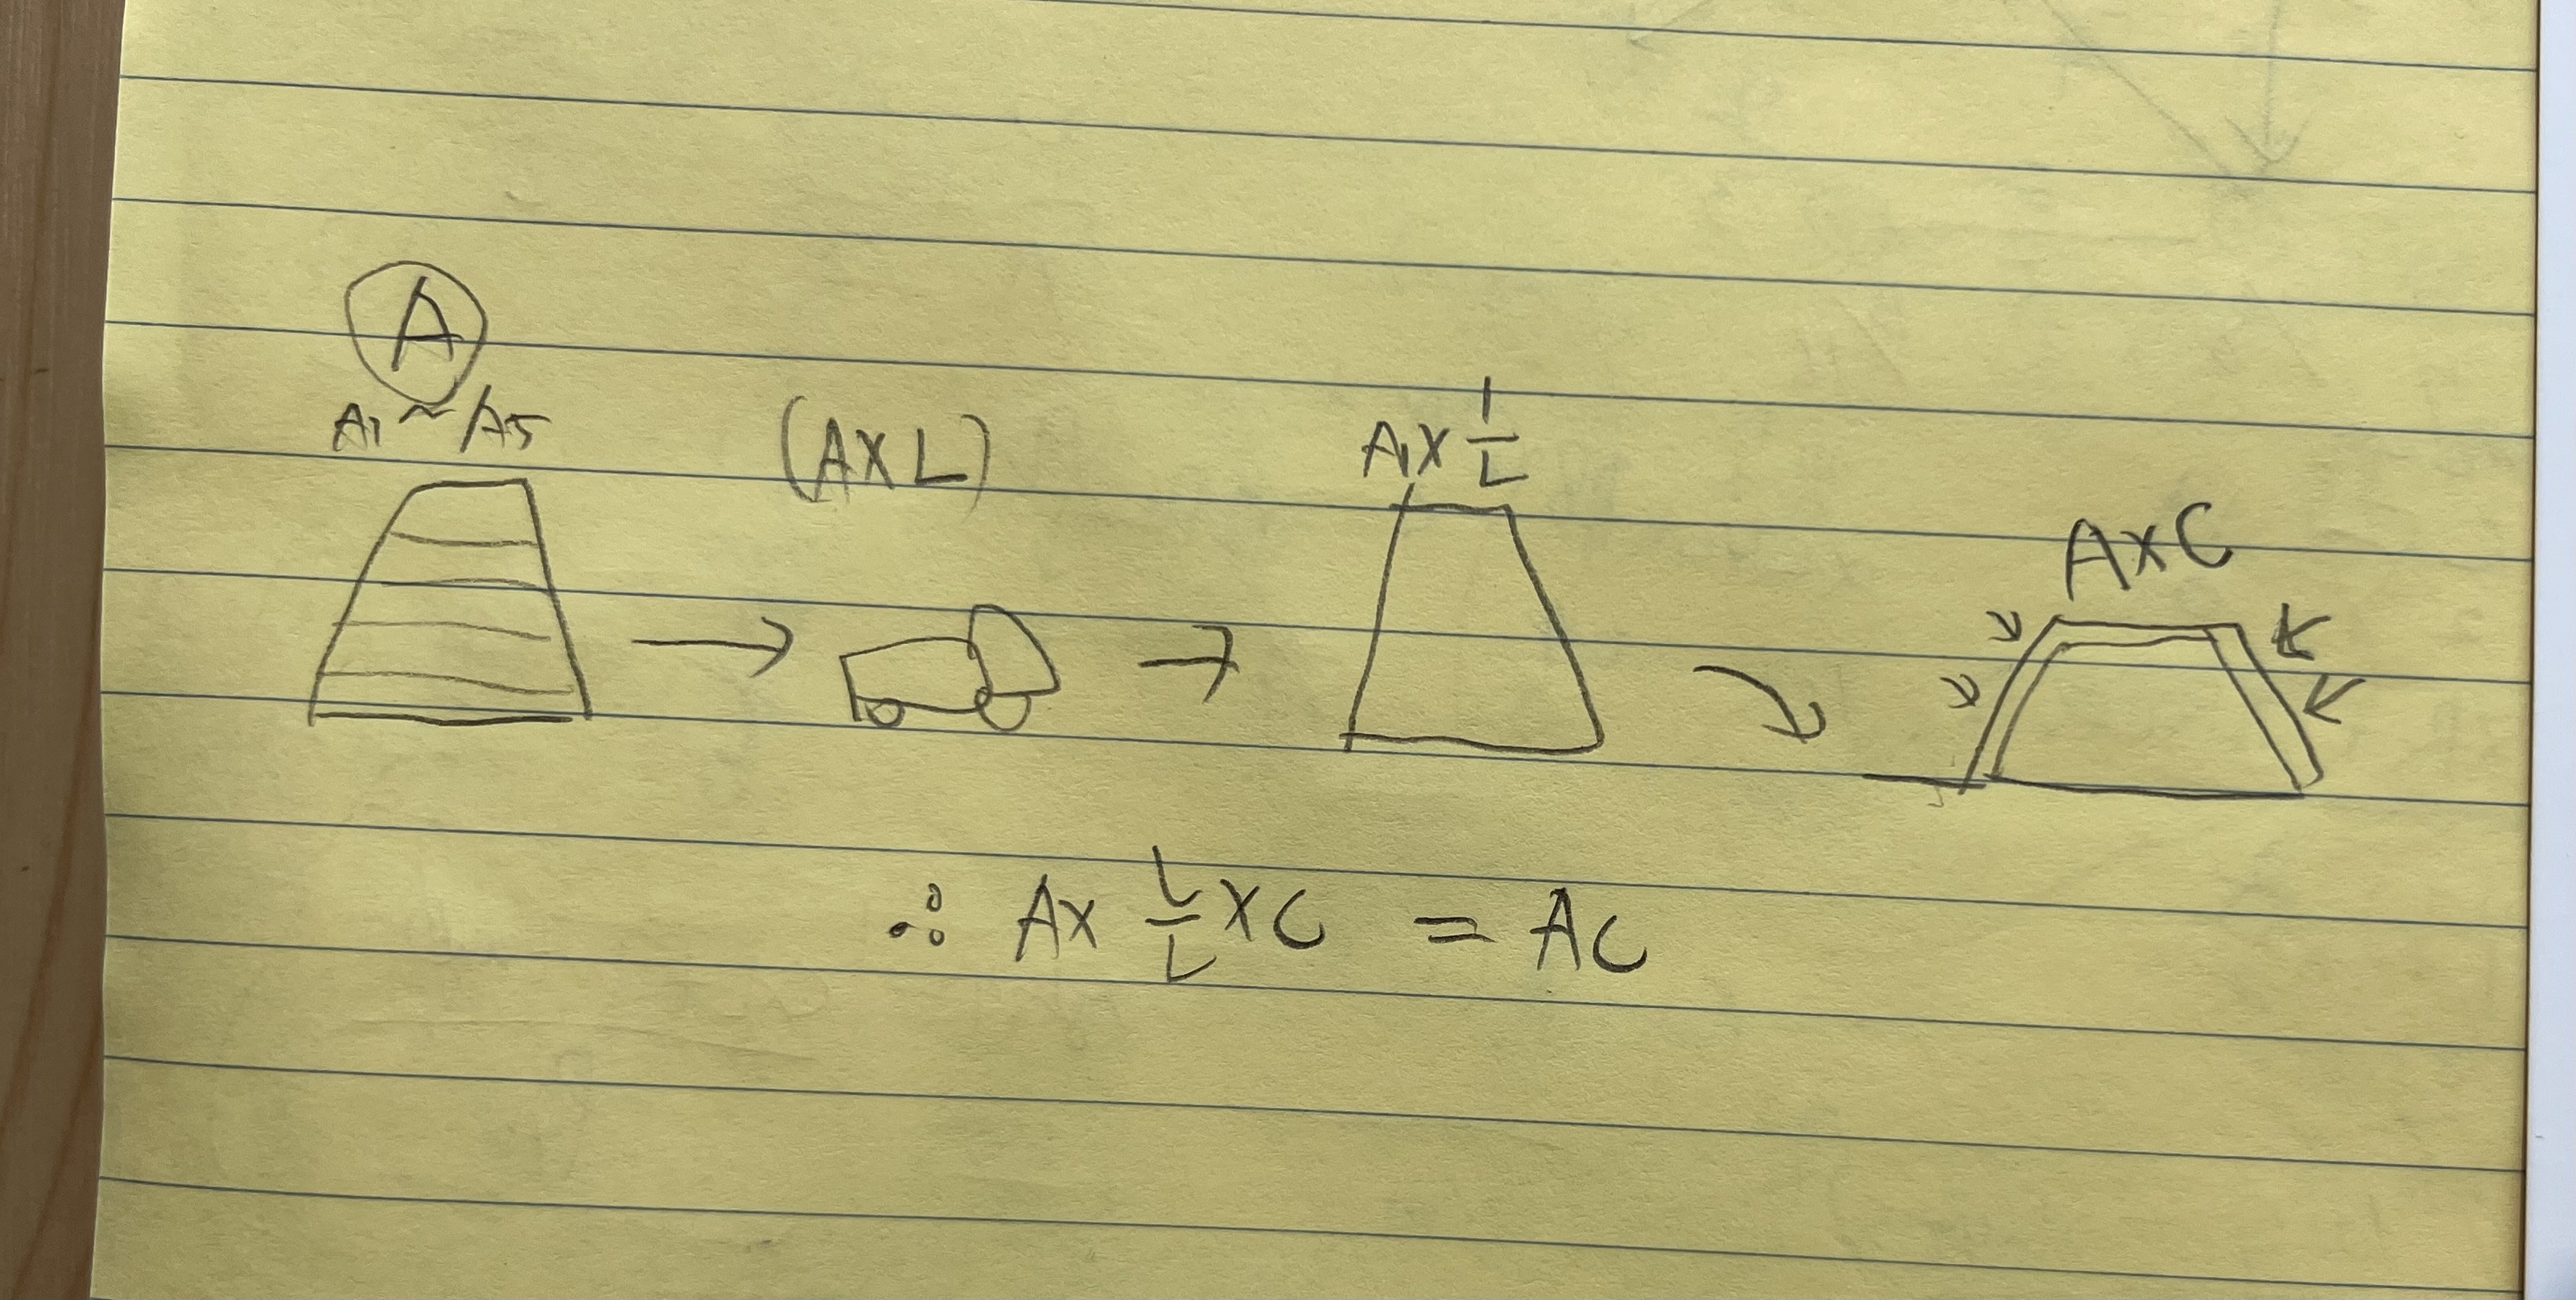 A
A1 ~ A5
(A×L)
A×1/L
A×C
∴ A× L/L ×C = AC